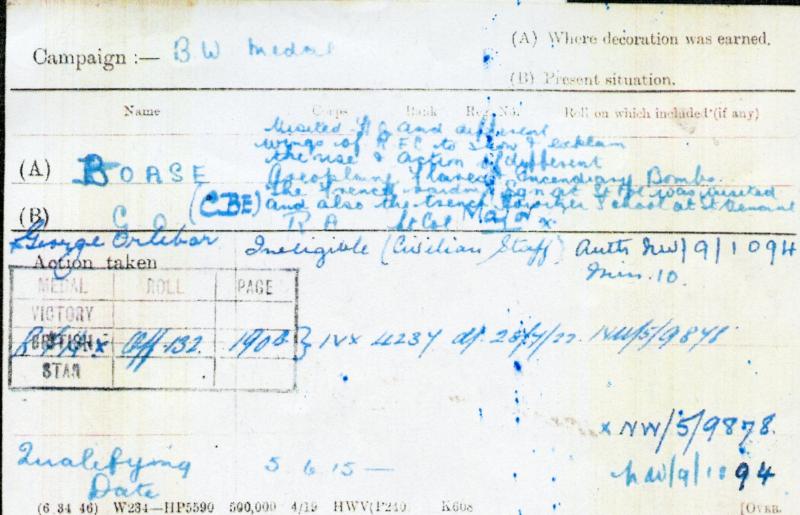 Campaign :— B W Medal
(A) Where decoration was earned.
(B) Present situation.
Name Corps Rank Reg. No. Roll on which included (if any)
Visited H Q and different
wings of R F C to show & explain
the use & action of different
Aeroplane Incendiary Bombs
(A) BOASE
The trench gun at St Pol was visited
(B) C. O. (CBE) and also the trench School at St
R A Lt Col Major x
George Orlebar Ineligible (Civilian Staff) Auth NW/9/1094
Min. 10.
Action taken
MEDAL ROLL PAGE
VICTORY
BRITISH Off 132 190B } IVX 4237 d/ 28/4/22 NW/5/9878
STAR
x NW/5/9878.
NW/9/1094
Qualifying 5 6 15 —
Date
(6 34 46) W234—HP5590 500,000 4/19 HWV(P240) K608
[OVER.